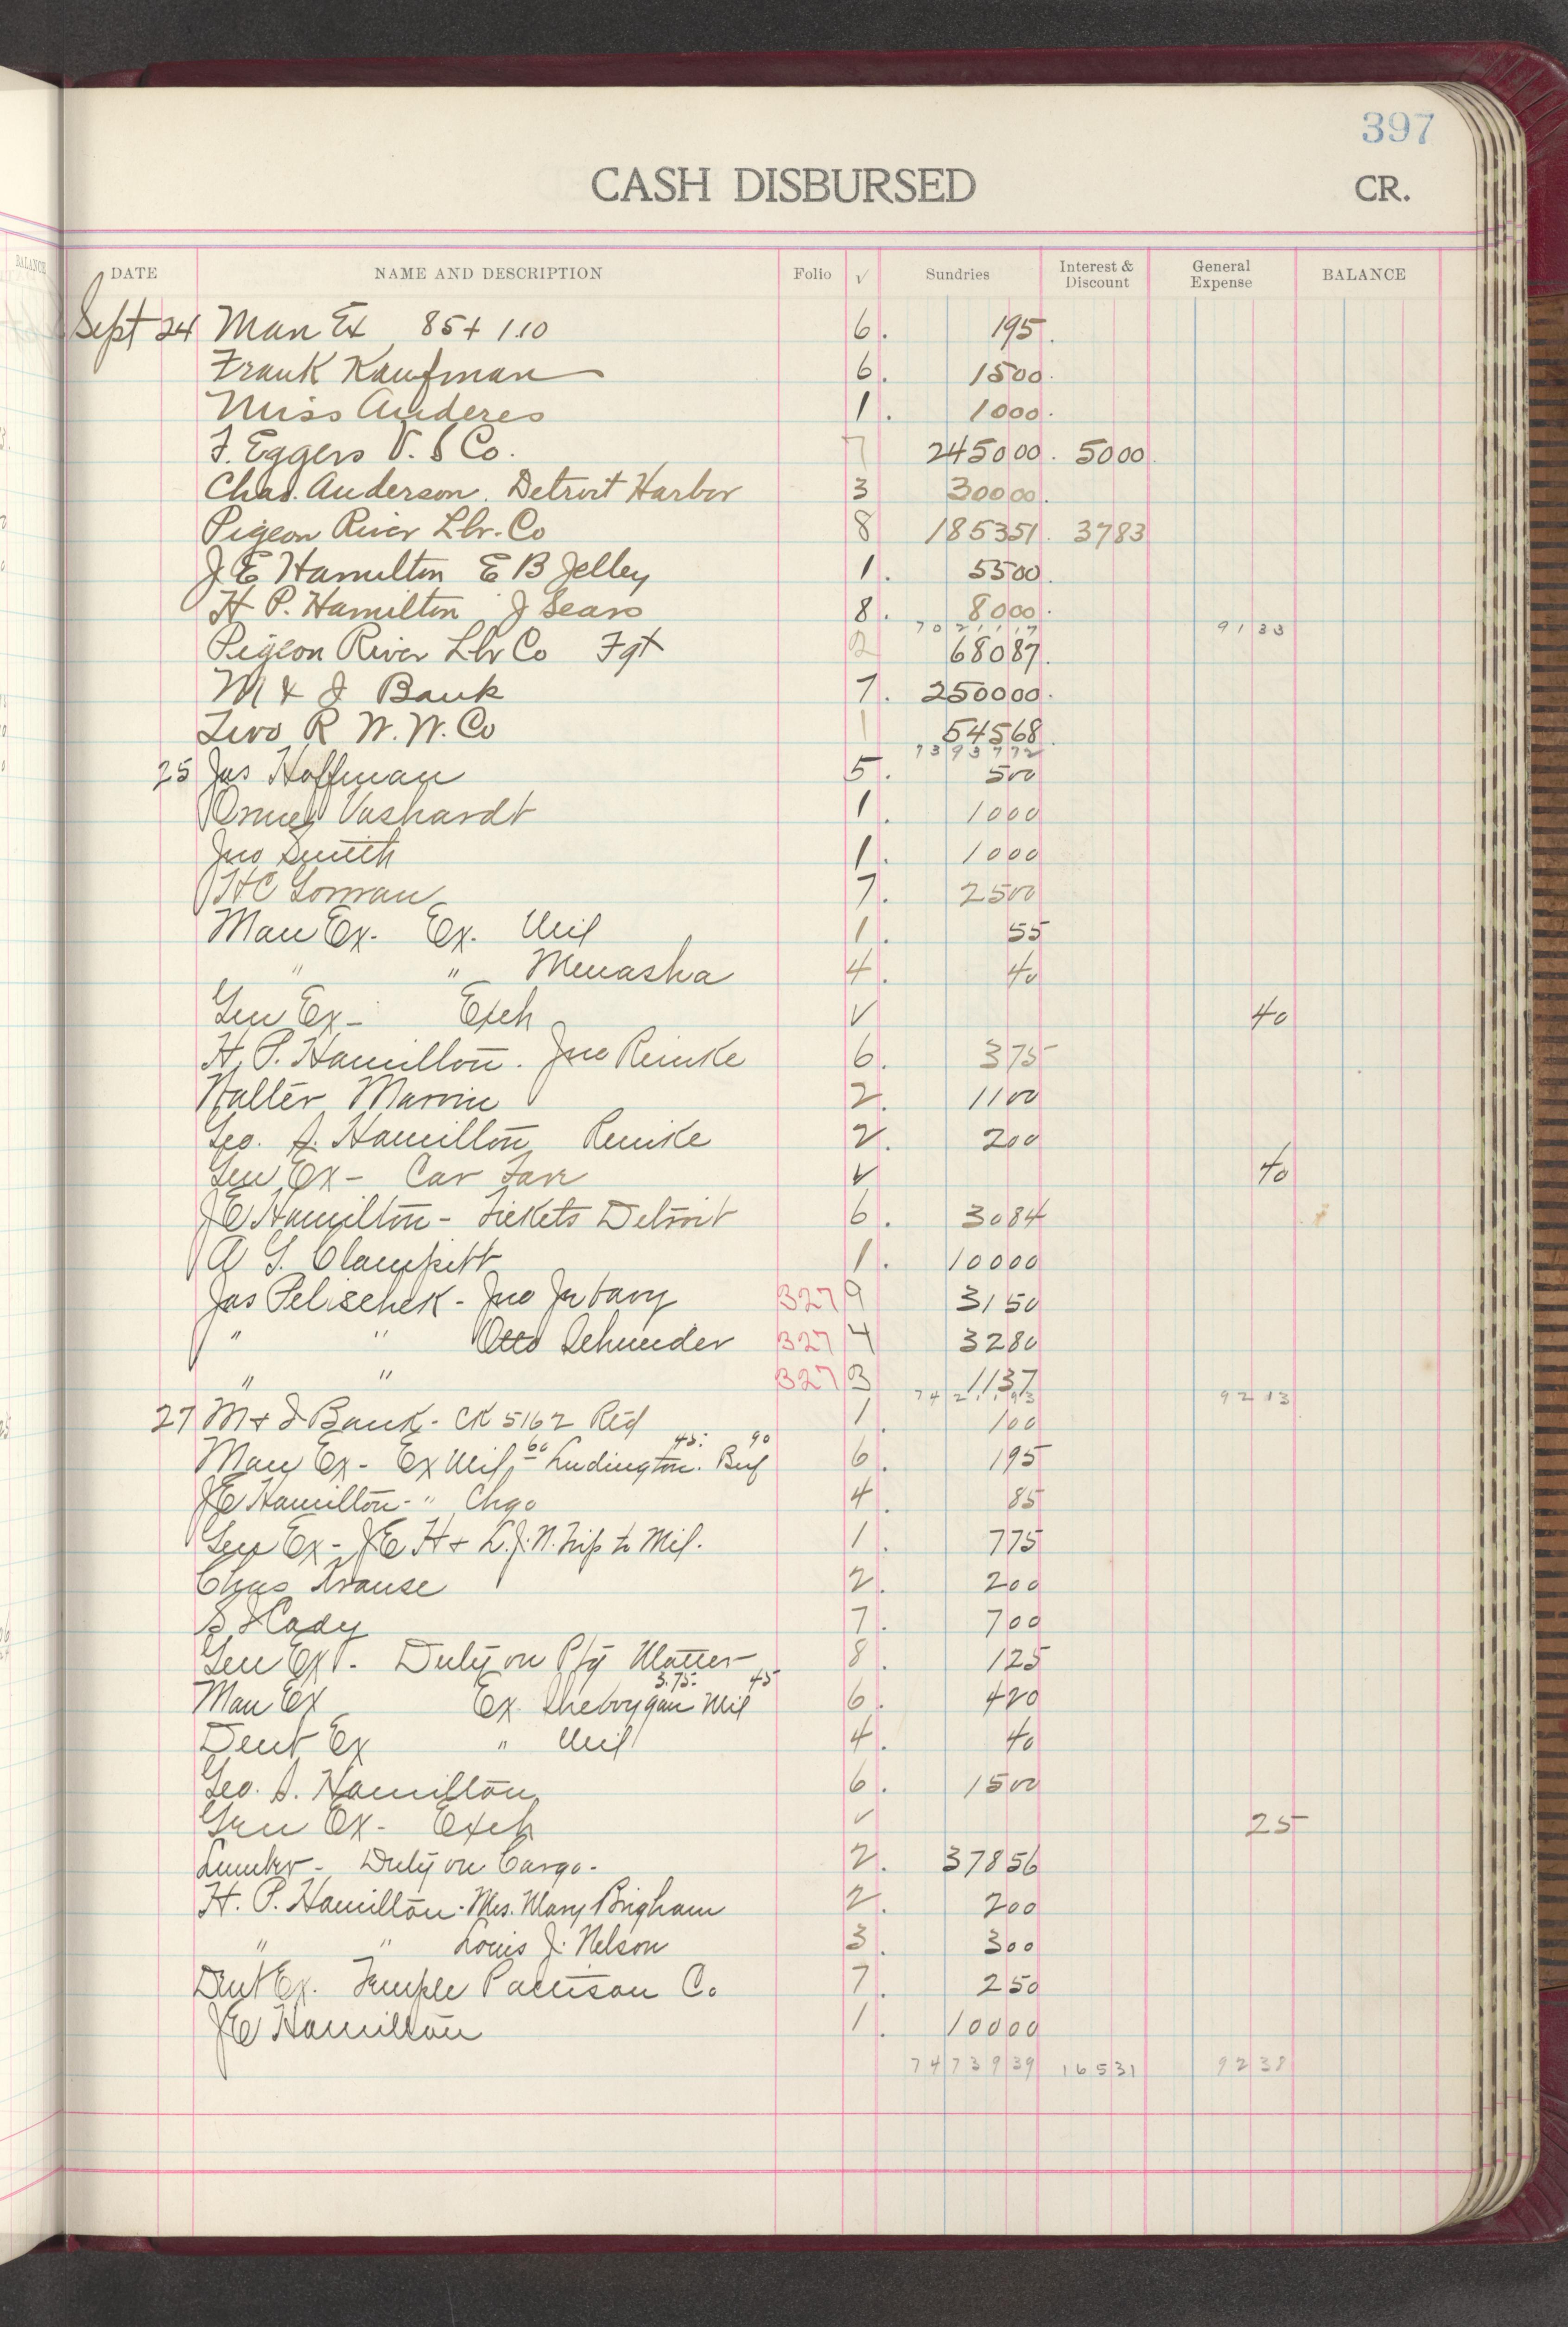 397
CASH DISBURSED CR.
BALANCE
DATE NAME AND DESCRIPTION Folio √ Sundries Interest & Discount General Expense BALANCE
Sept 24 Man Ex 85 + 1.10 6. 195.
Frank Kaufman 6. 1500.
Miss Anderes 1. 1000.
F. Eggers V. & Co. 7 245000. 5000.
Chas. Anderson. Detroit Harbor 3 30000.
Pigeon River Lbr. Co 8 185351. 3783
J E Hamilton E B Jelley 1. 5500.
H P. Hamilton J Sears 8. 8000.
7021117 9133
Pigeon River Lbr Co Fgt 2 68087.
M & I Bank 7. 250000.
Two R W. W. Co 1 54568.
7393772
25 Jas Hoffman 5. 500
Vashardt 1. 1000
Jno Smith 1. 1000
H C Gorman 7. 2500
Man Ex. Ex. Mil 1. 55
" " Menasha 4. 40
Gen Ex - Exch √ 40
H. P. Hamilton. Jno Reinke 6. 375
Walter Marvin 2. 1100
Geo. S. Hamilton Reinke 2. 200
Gen Ex - Car Fare √ 40
J E Hamilton - Tickets Detroit 6. 3084
A G. Clampitt 1. 10000
Jas Pelischek - Jno 327 9 3150
" " Otto Schneider 327 4 3280
" " 327 3 1137
7421193 9213
27 M & I Bank - CK 5162 Ret'd 1. 100
Man Ex - Ex Mil, 60 Ludington. 45: Buf 90 6. 195
J E Hamilton - " Chgo 4. 85
Gen Ex - J E H + L. J. N. Trip to Mil. 1. 775
Chas Krause 2. 200
S J Cady 7. 700
Gen Ex. - Duty on Ptg Matter 8. 125
Man Ex Ex. Sheboygan 3.75. Mil 45 6. 420
Dent Ex " Mil 4. 40
Geo. S. Hamilton 6. 1500
Gen Ex - Exch √ 25
Lumber - Duty on Cargo - 2. 37856
H. P. Hamilton - Mrs. Mary Brigham 2. 200
" " Louis J. Nelson 3. 300
Dent Ex. Temple Pattison Co. 7. 250
J E Hamilton 1. 10000
7473939 16531 9238